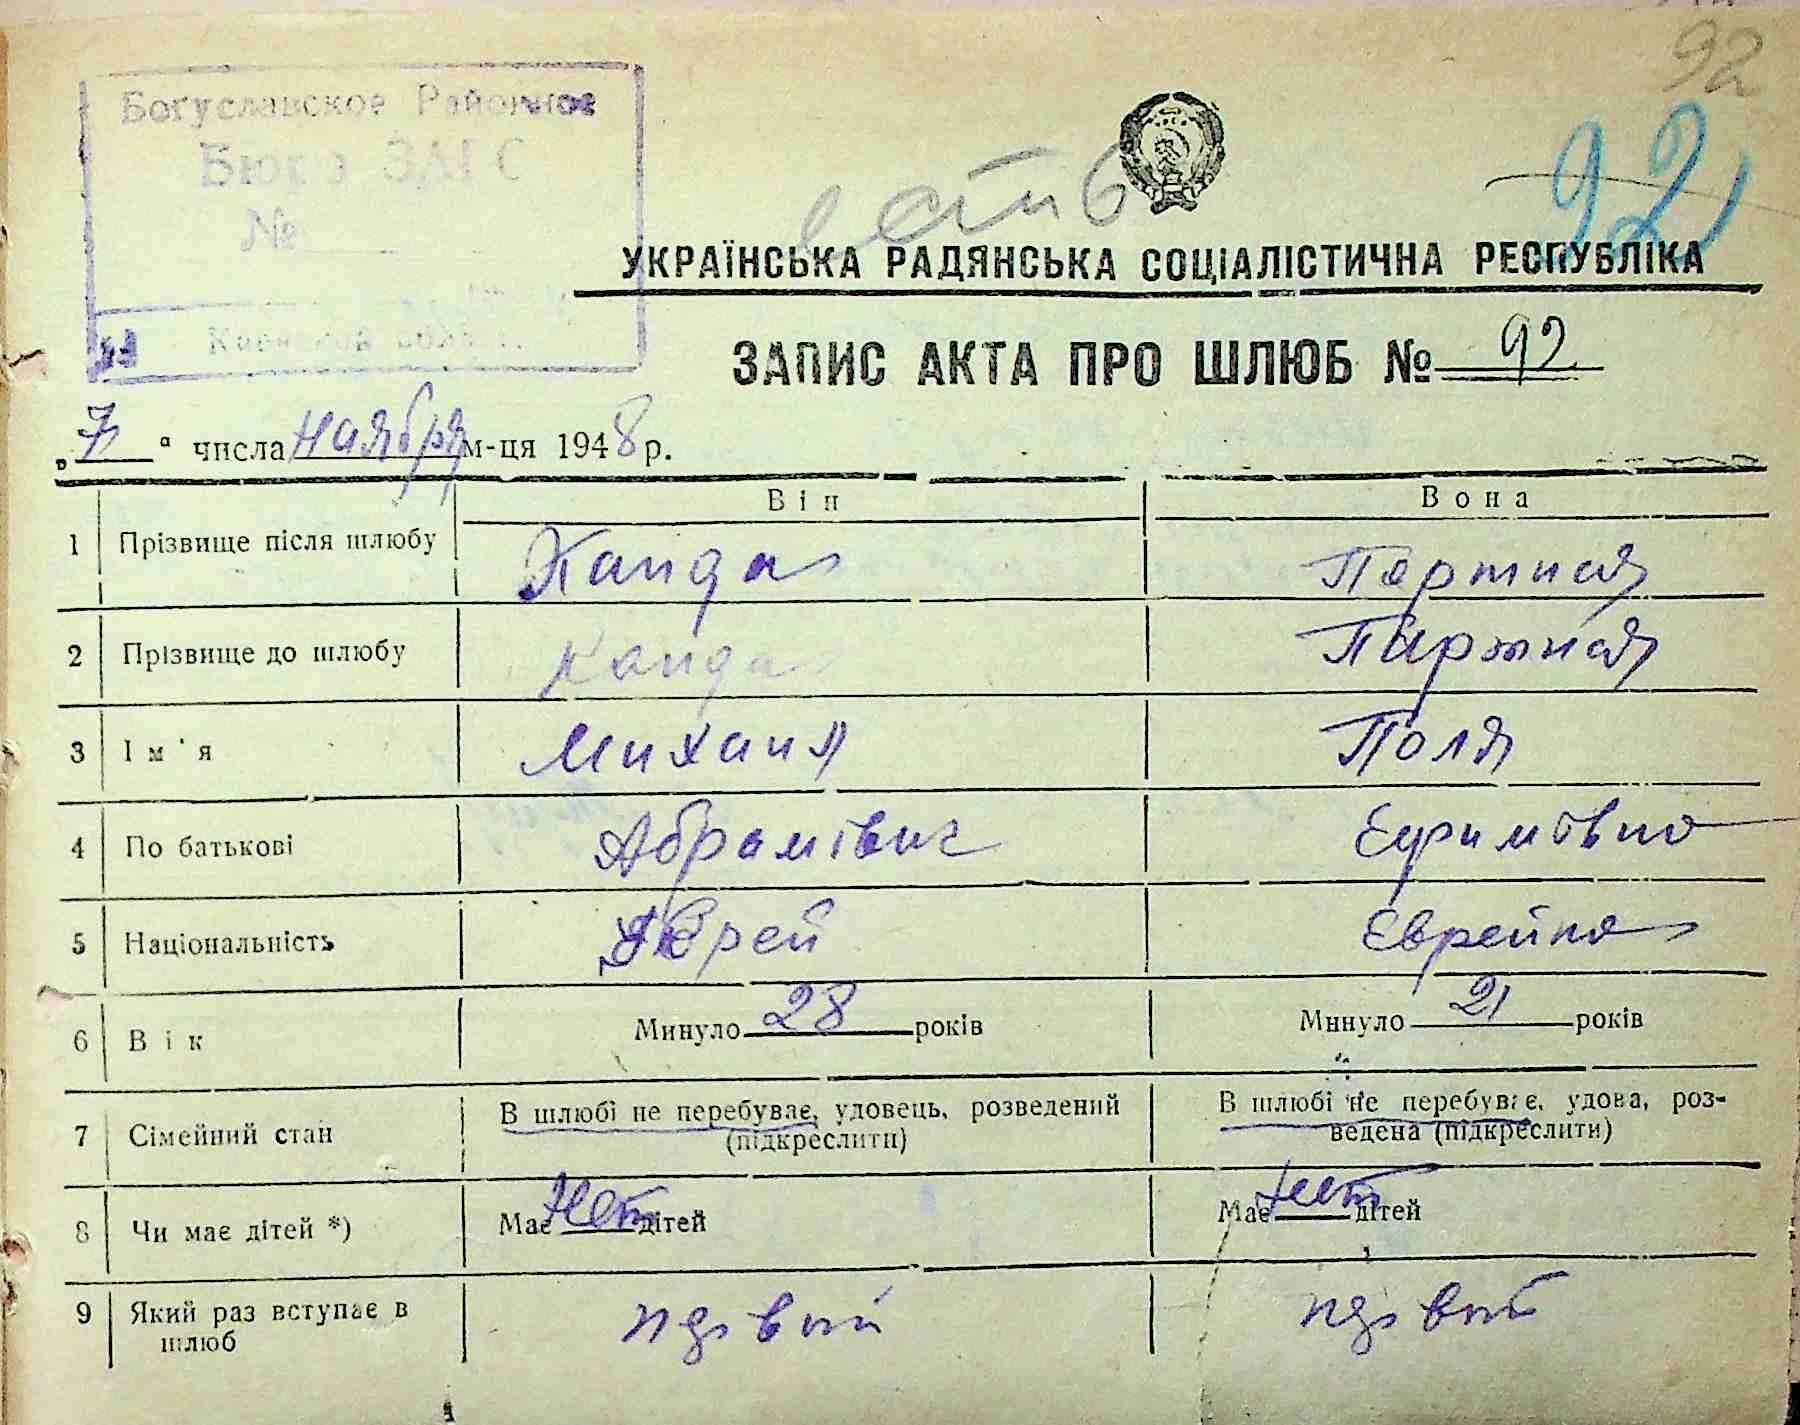 92
Богуславское Районное
Бюро ЗАГС
№
Киевской области
есть
92
УКРАЇНСЬКА РАДЯНСЬКА СОЦІАЛІСТИЧНА РЕСПУБЛІКА
ЗАПИС АКТА ПРО ШЛЮБ № 92
„7" числа ноября м-ця 1948 р.
Він Вона
1 Прізвище після шлюбу Капда Портная
2 Прізвище до шлюбу Капда Портная
3 Ім'я Михаил Поля
4 По батькові Абрамівич Ефимовна
5 Національність Еврей Еврейка
6 Вік Минуло 28 років Минуло 21 років
7 Сімейний стан В шлюбі не перебуває, удовець, розведений (підкреслити) В шлюбі не перебуває, удова, роз-
ведена (підкреслити)
8 Чи має дітей *) Має нет дітей Має нет дітей
9 Який раз вступає в шлюб первий первий